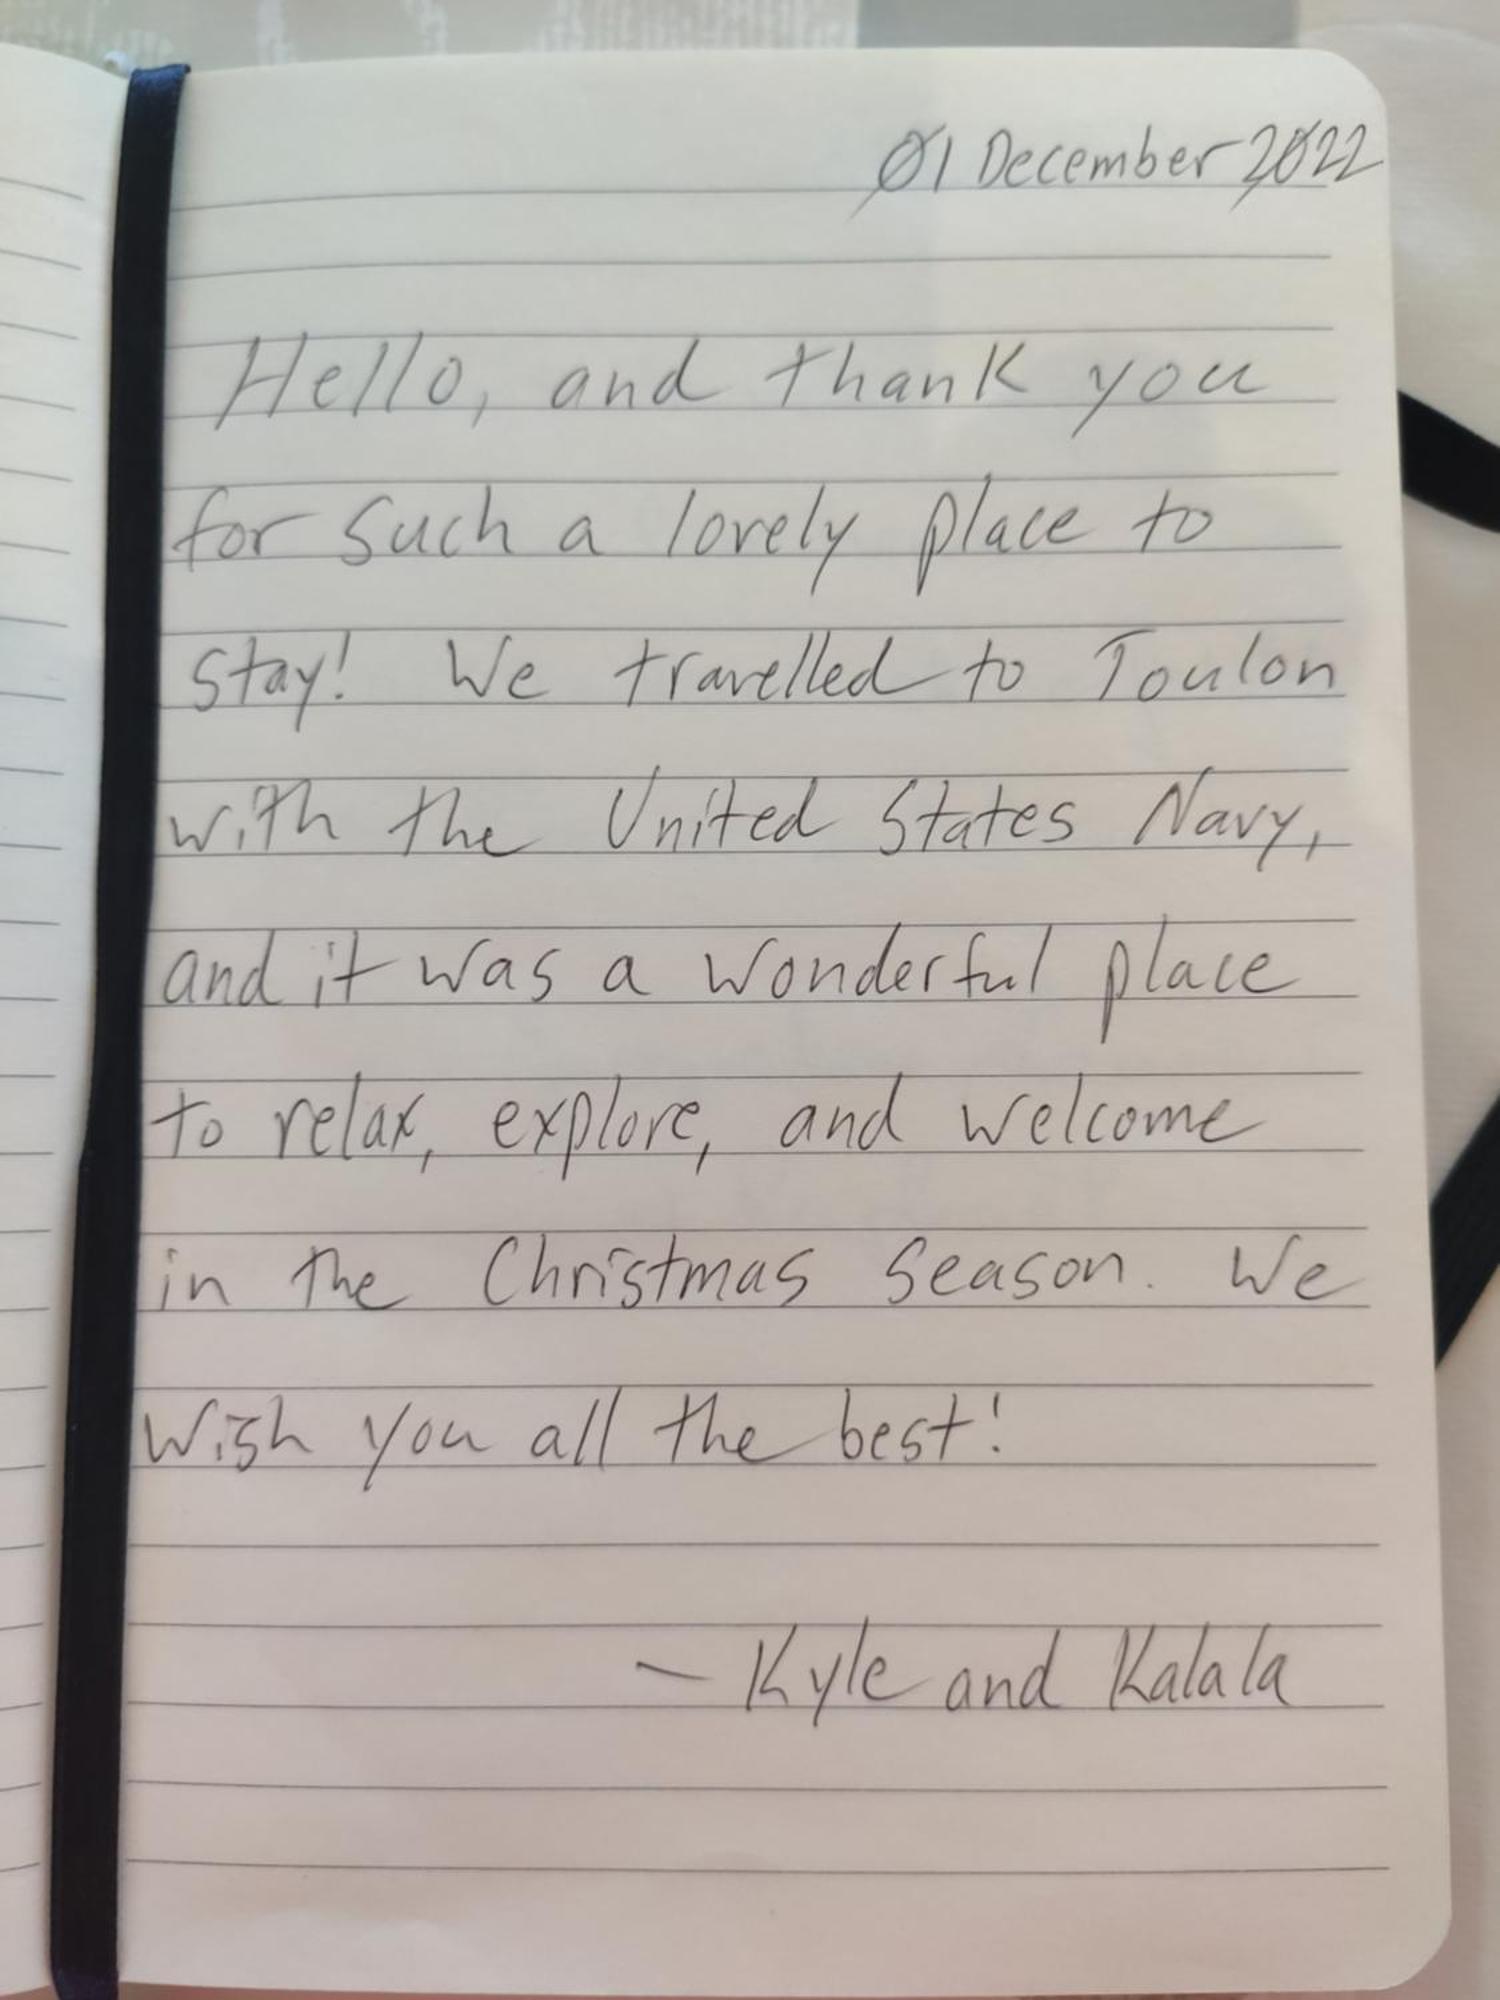 01 December 2022
Hello, and thank you
for such a lovely place to
stay! We travelled to Toulon
with the United States Navy,
and it was a wonderful place
to relax, explore, and welcome
in the Christmas season. We
wish you all the best!
- Kyle and Kalala